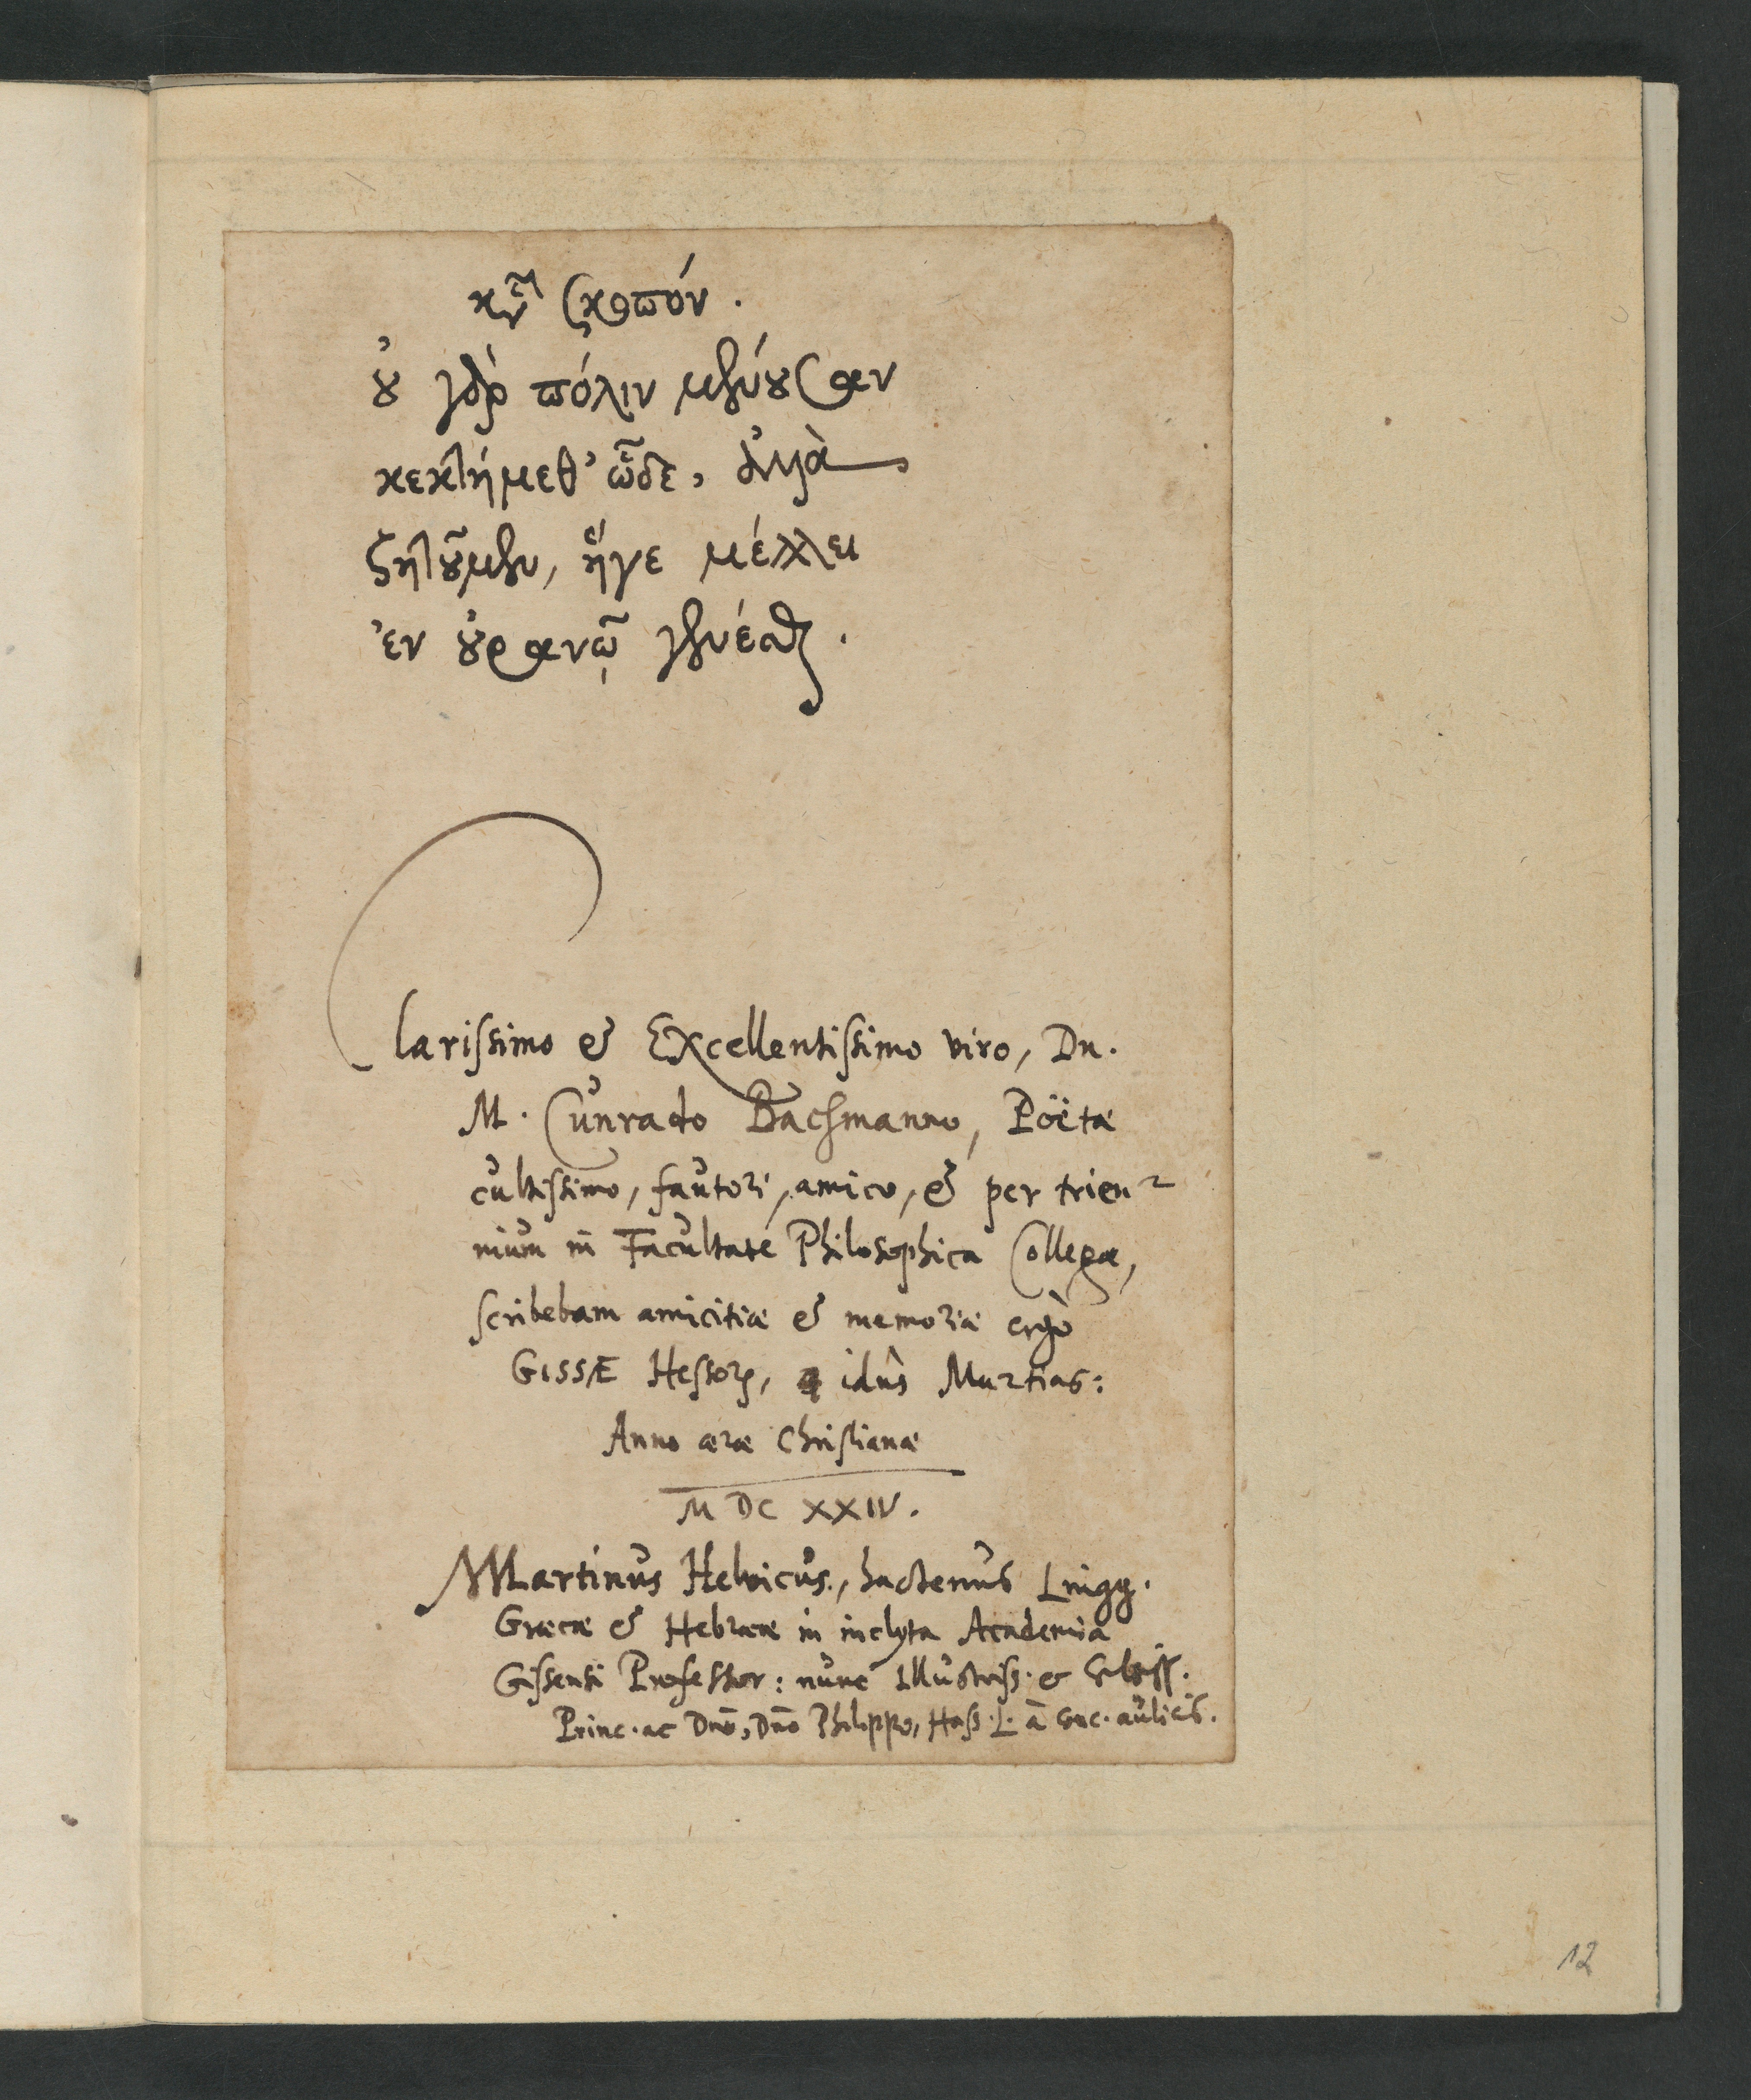 κτ̃ σκοπόν.
οὐ γὰρ πόλιν μένουσαν
κεκτήμεθ' ὧδε, ἀλλὰ
ζητοῦμεν, ἥγε μέλλει
ἐν οὐρανῷ γενέσθαι.
Clarissimo & Excellentissimo viro, Dn.
M. Cunrado Bachmanno, Poëtæ
cultissimo, fautori, amico, & per trien-
nium in Facultate Philosophica Collegæ,
scribebam amicitiæ & memoriæ ergò
GISSÆ Hessorꝝ, 4 idûs Martias:
Anno æræ Christianæ
M DC XXIV.
Martinus Helvicus, hactenus Lingg.
Græcæ & Hebrææ in inclyta Academia
Gissensi Professor: nunc Illustriss. & Celsiss.
Princ. ac Dnō, Dnō Philippo, Hass. L. à conc. aulicis.
12